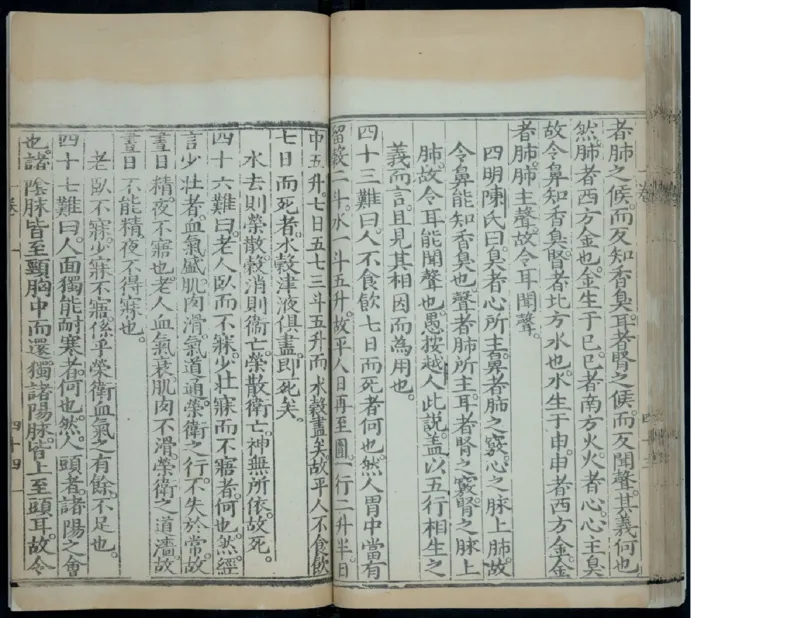 者肺之候。而反知香臭。耳者腎之候。而反聞聲。其義何也。
然。肺者西方金也。金生于巳。巳者南方火。火者心。心主臭。
故令鼻知香臭。腎者北方水也。水生于申。申者西方金。金
者肺。肺主聲。故令耳聞聲。
四明陳氏曰。臭者心所主。鼻者肺之竅。心之脉上肺。故
令鼻能知香臭也。聲者肺所主。耳者腎之竅。腎之脉上
肺。故令耳能聞聲也。愚按越人此說。盖以五行相生之
義而言。且見其相因而為用也。
四十三難曰。人不食飲七日而死者何也。然。人胃中當有
留穀二斗。水一斗五升。故平人日再至圊。一行二升半。日
中五升。七日五七三斗五升。而水穀盡矣。故平人不食飲
七日而死者。水穀津液俱盡。即死矣。
水去則榮散。穀消則衛亡。榮散衛亡。神無所依。故死。
四十六難曰。老人臥而不寐。少壯寐而不寤者。何也。然。經
言少壯者。血氣盛。肌肉滑。氣道通。榮衛之行。不失於常。故
晝日精。夜不寤也。老人血氣衰。肌肉不滑。榮衛之道濇。故
晝日不能精。夜不得寐也。
老臥不寐。少寐不寤。係乎榮衛血氣之有餘。不足也。
四十七難曰。人面獨能耐寒者。何也。然。人頭者。諸陽之會
也。諸陰脉皆至頸胸中而還。獨諸陽脉。皆上至頭耳。故令
卷
四十四